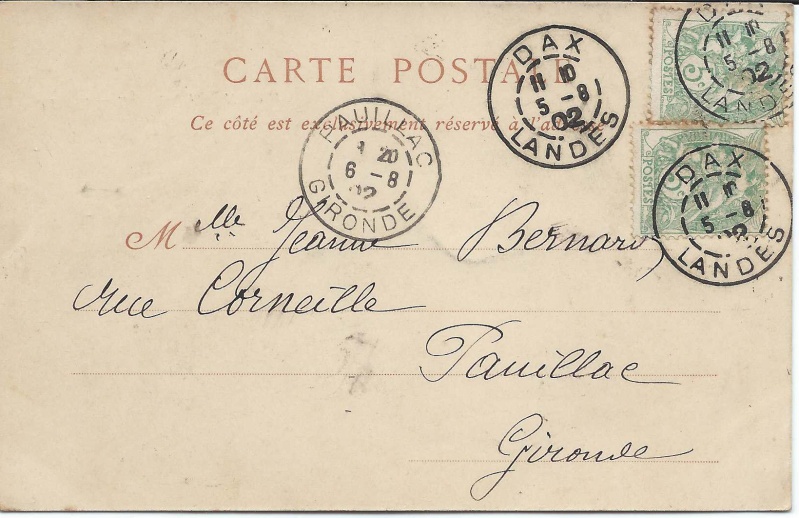 CARTE POSTALE
Ce côté est exclusivement réservé à l'adresse
DAX
11 10
5 - 8
02
LANDES
DAX
11 10
5 - 8
02
LANDES
POSTES
5
DAX
11 10
5 - 8
02
LANDES
POSTES
5
PAUILLAC
20
6 - 8
02
GIRONDE
Mlle Jeanne Bernard
rue Corneille
Pauillac
Gironde